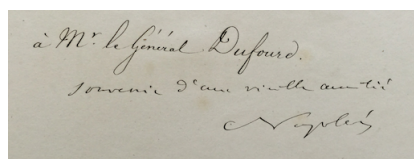 à Mr. le Général Dufourd.
souvenir d'une vieille amitié
Napoléon